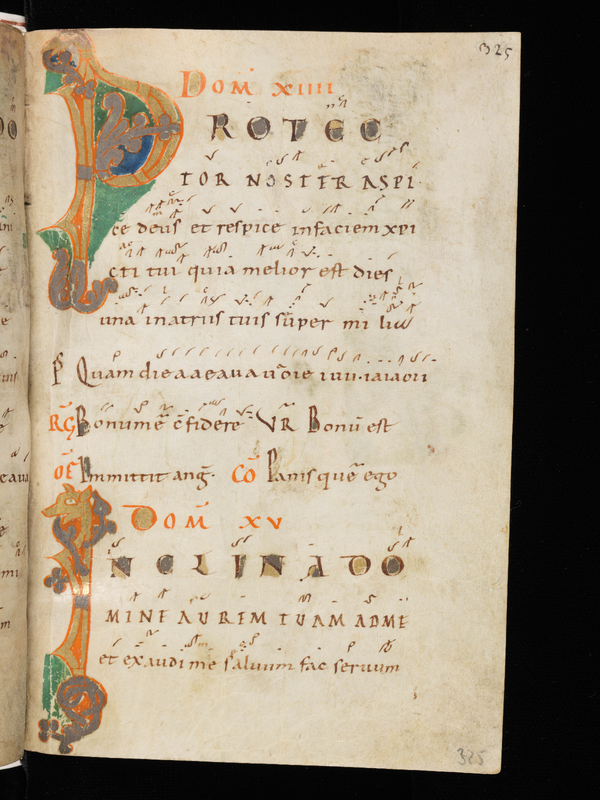 325
DOM XIIII
PROTEC
TOR NOSTER ASPI
ce deus et respice infaciem xpi
cti tui quia melior est dies
una inatriis tuis super milia
Ps Quam die a a e a u a uoie iuu·iaiaoıı
RG Bonum ē c̄fidere VR Bonū est
OF Immittit ang̃· CŌ Panis quē ego
DOM̄ XV
INCLINA DO
MINE AUREM TUAM AD ME
et exaudi me saluum fac seruum
325